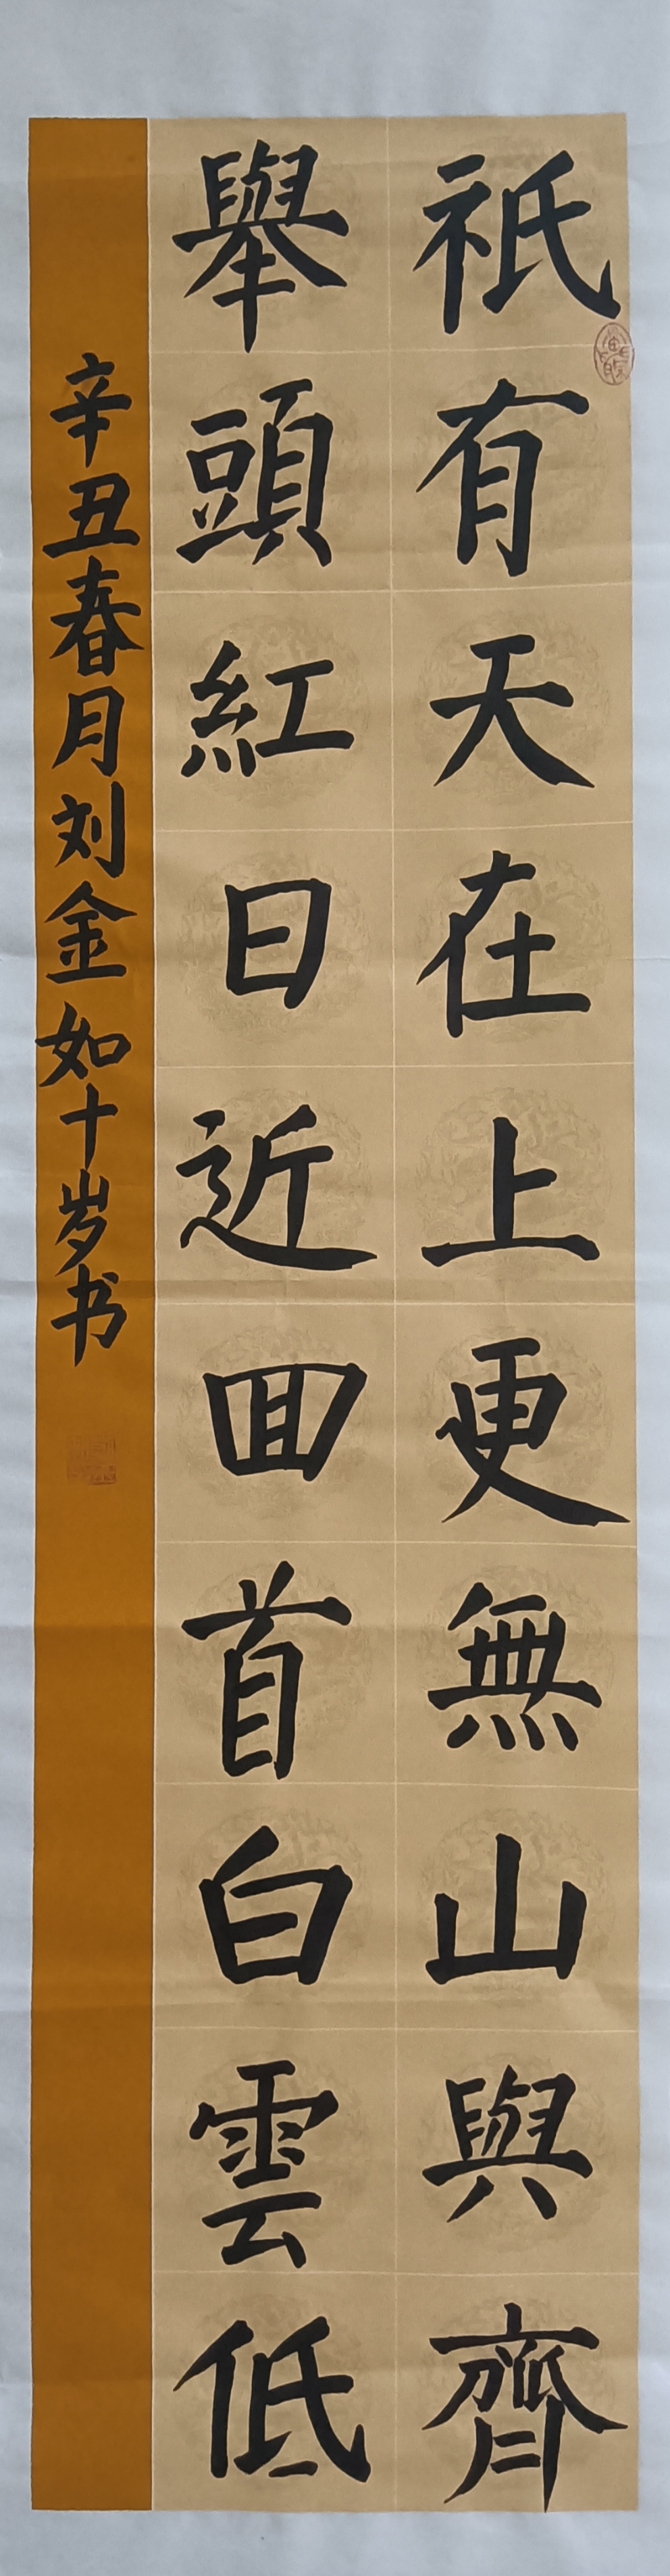 祇有天在上更無山與齊
舉頭紅日近回首白雲低
辛丑春月刘金如十岁书